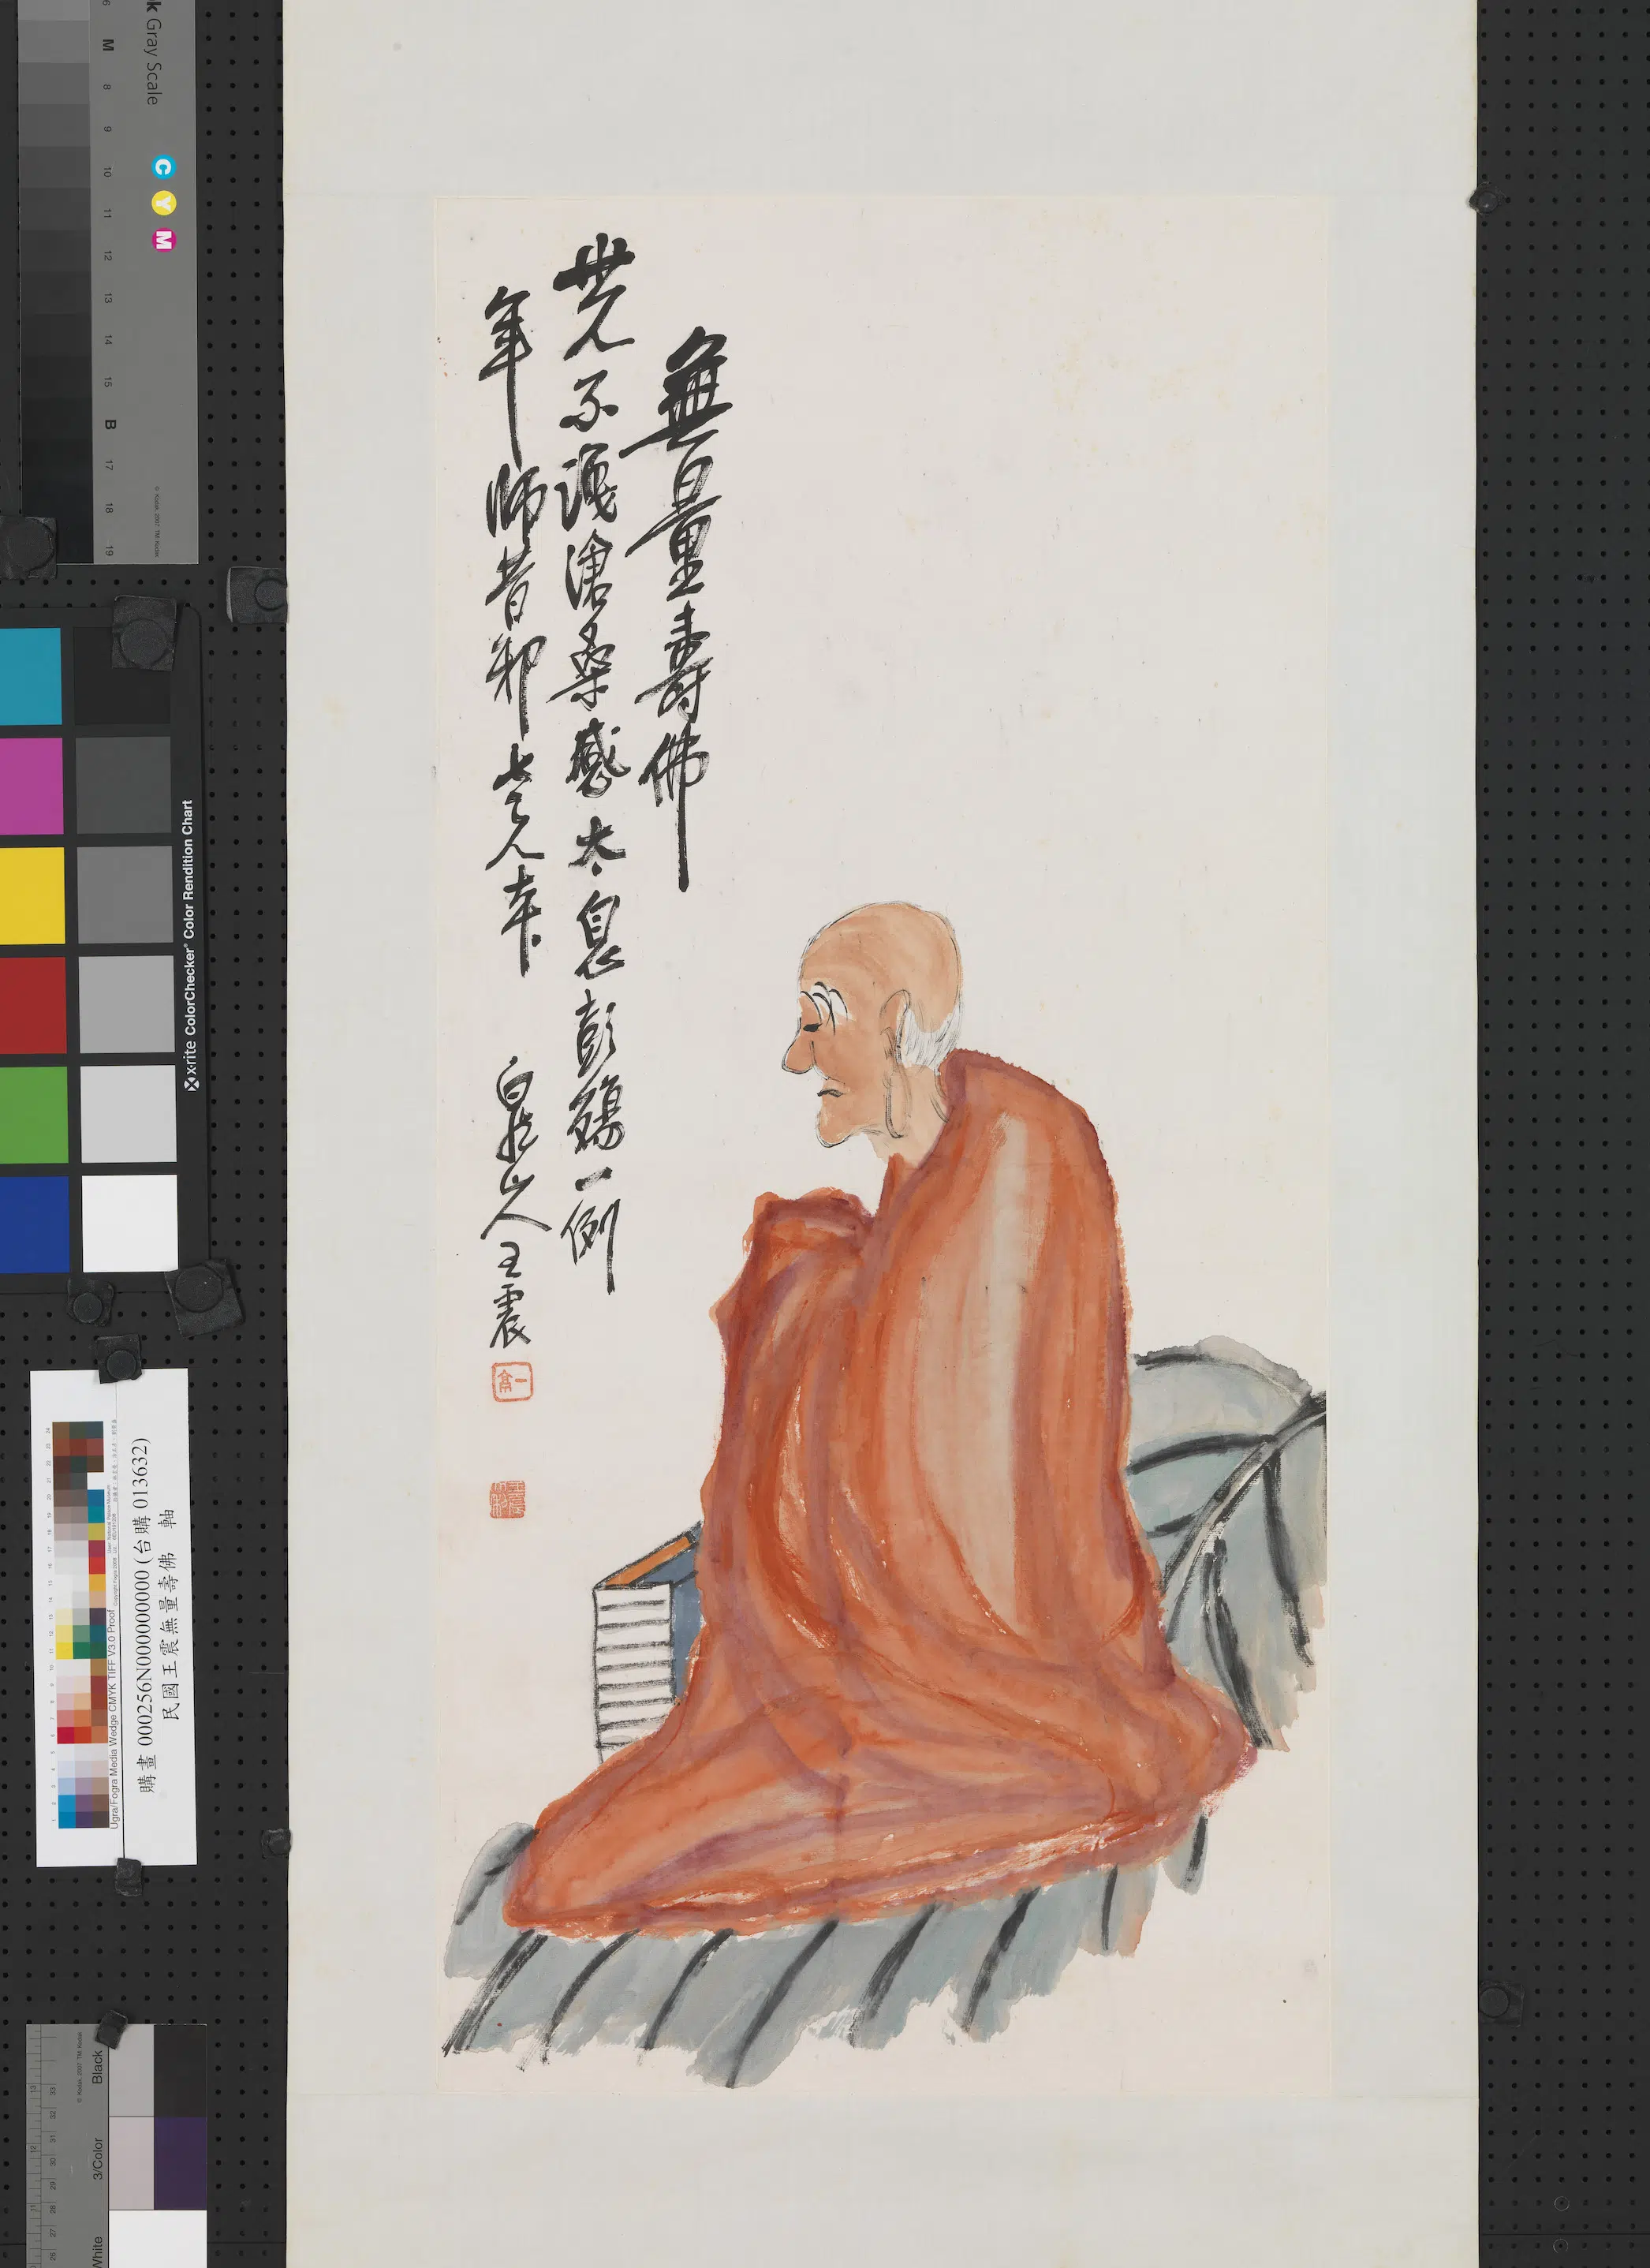 無量壽佛
世人不識滄桑感太息彭殤一例
年師昔邪老人筆 白龍山人王震
Gray Scale
C Y M
M 8 9 10 11 12 13 14 15 B 17 18 19
© Kodak, 2007 TM: Kodak
x-rite ColorChecker Color Rendition Chart
購畫 000256N000000000 (台購 013632)
民國王震無量壽佛 軸
Ugra/Fogra Media Wedge CMYK TIFF V3.0 Proof
Black
3/Color
White
© Kodak, 2007 TM: Kodak